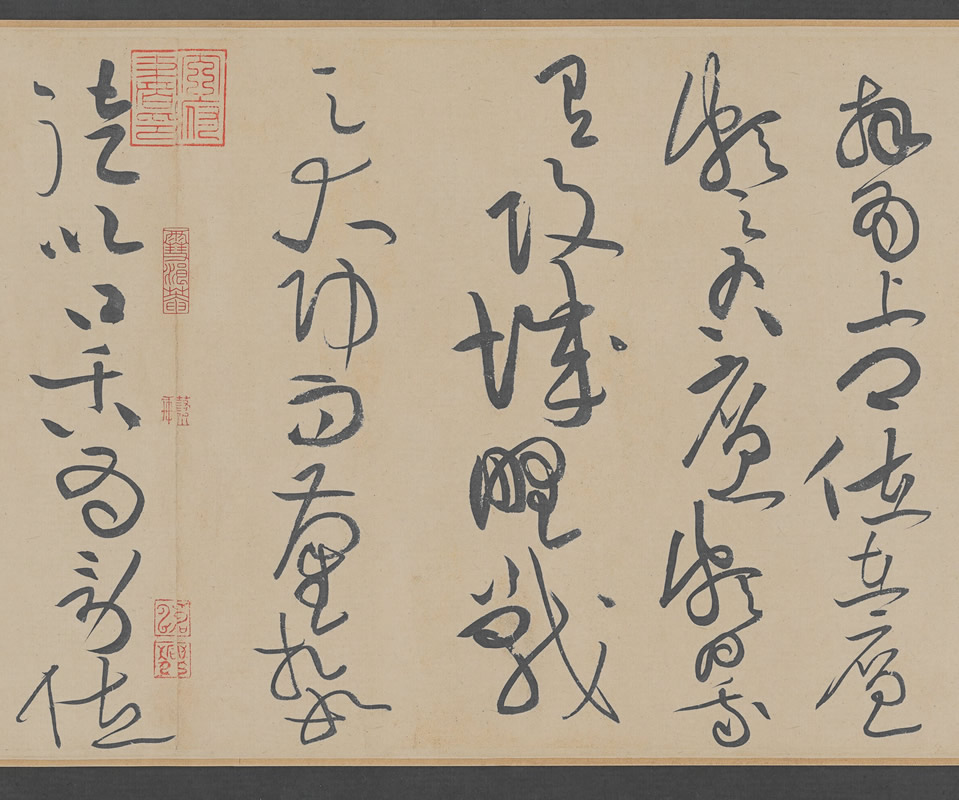 拜為上卿位在廉
頗之右廉頗曰我
攻城野戰
之大功而藺相如
徒以口舌為勞位